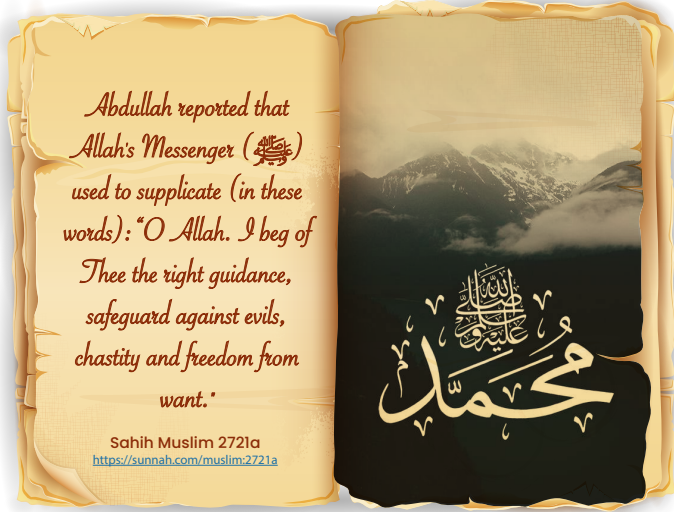 Abdullah reported that
Allah's Messenger (ﷺ)
used to supplicate (in these
words): "O Allah. I beg of
Thee the right guidance,
safeguard against evils,
chastity and freedom from
want."
Sahih Muslim 2721a
https://sunnah.com/muslim:2721a
صلى الله عليه وسلم
محمد